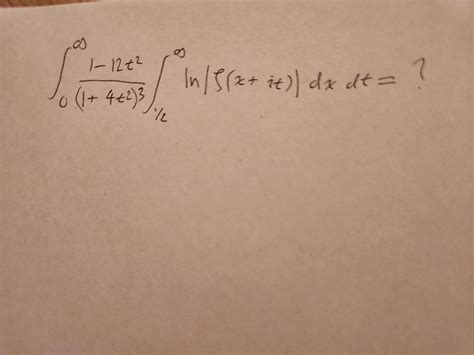 ∫₀^∞ (1 - 12t²)/(1 + 4t²)³ ∫_{1/2}^∞ ln|ζ(x + it)| dx dt = ?